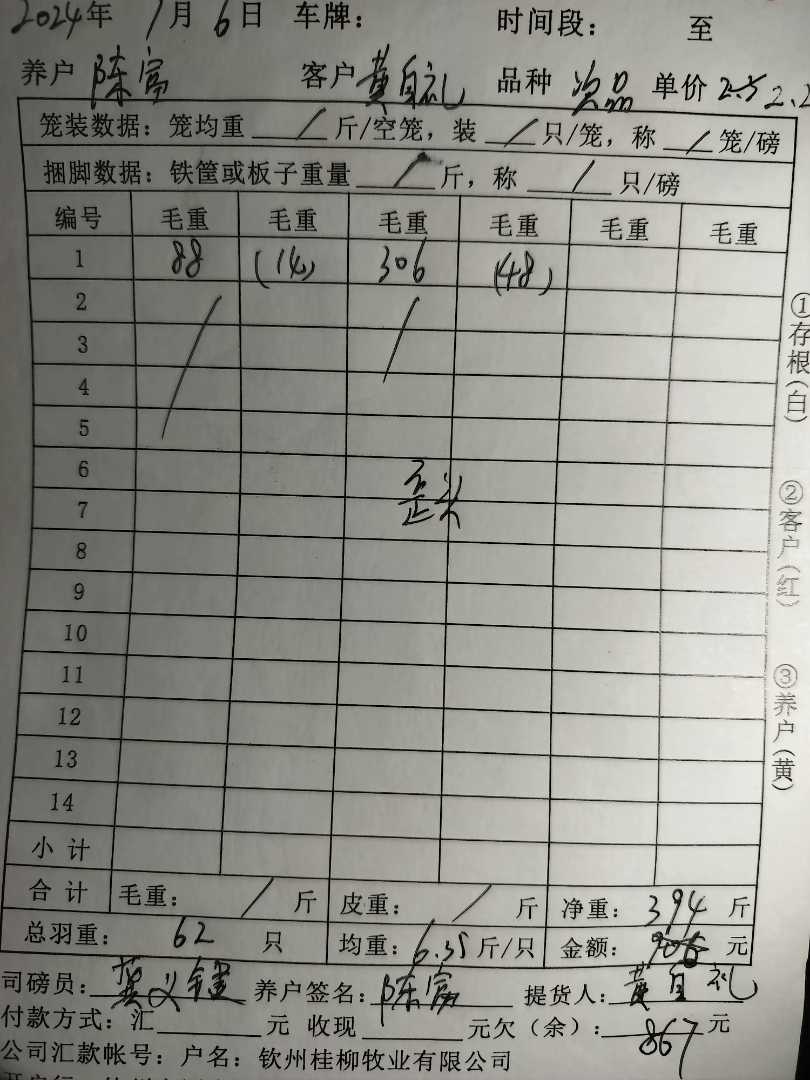 2024年 1月 6日 车牌： 时间段： 至
养户 陈富 客户 黄自礼 品种 次品 单价 2.5 2.2
笼装数据：笼均重 / 斤/空笼，装 / 只/笼，称 / 笼/磅
捆脚数据：铁筐或板子重量 / 斤，称 / 只/磅
编号 毛重 毛重 毛重 毛重 毛重 毛重
1 88 (14) 306 (48)
2
3
4
5
6
歪头
7
8
9
10
11
12
13
14
小计
合计 毛重： / 斤 皮重： / 斤 净重：394 斤
总羽重： 62 只 均重：6.35斤/只 金额： 元
司磅员：龚义键 养户签名：陈富 提货人：黄自礼
付款方式：汇 元 收现 元欠（余）：867元
公司汇款帐号：户名：钦州桂柳牧业有限公司
①存根(白)
②客户(红)
③养户(黄)